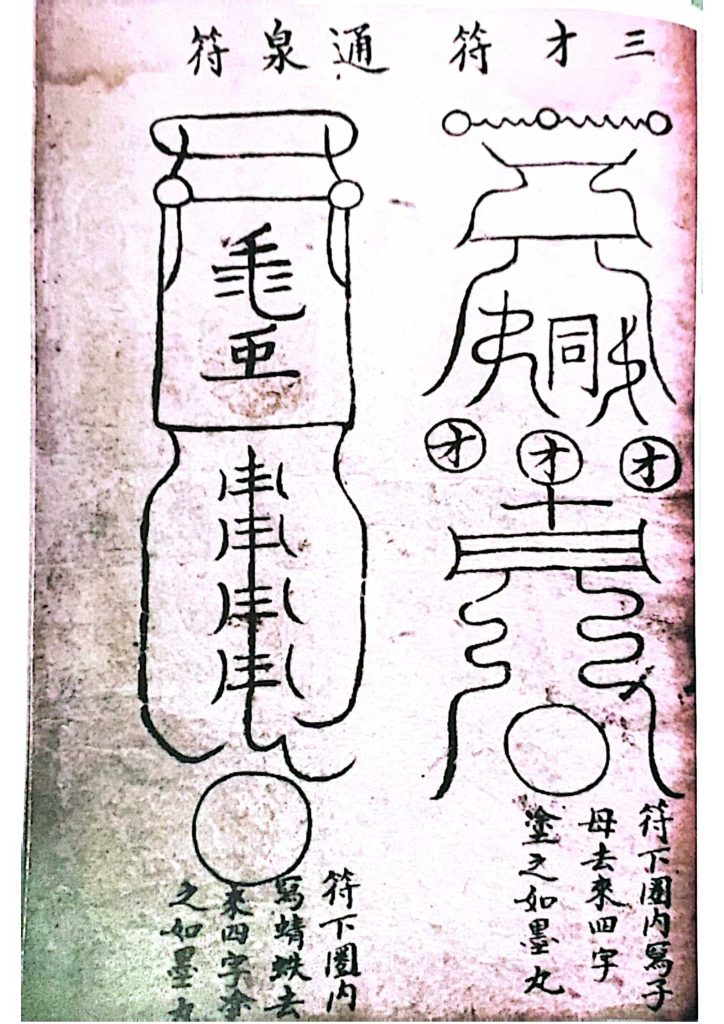 三才符
同
才
才
才
符下圈内寫子
母去來四字
塗之如墨丸
通泉符
符下圈内
寫蜻蚨去
來四字塗
之如墨丸